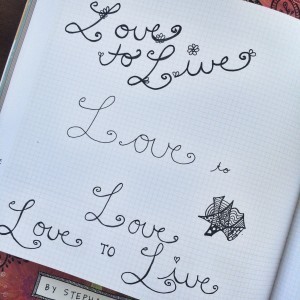 Love
to Live
Love to
Love
Love to Live
BY STEPH